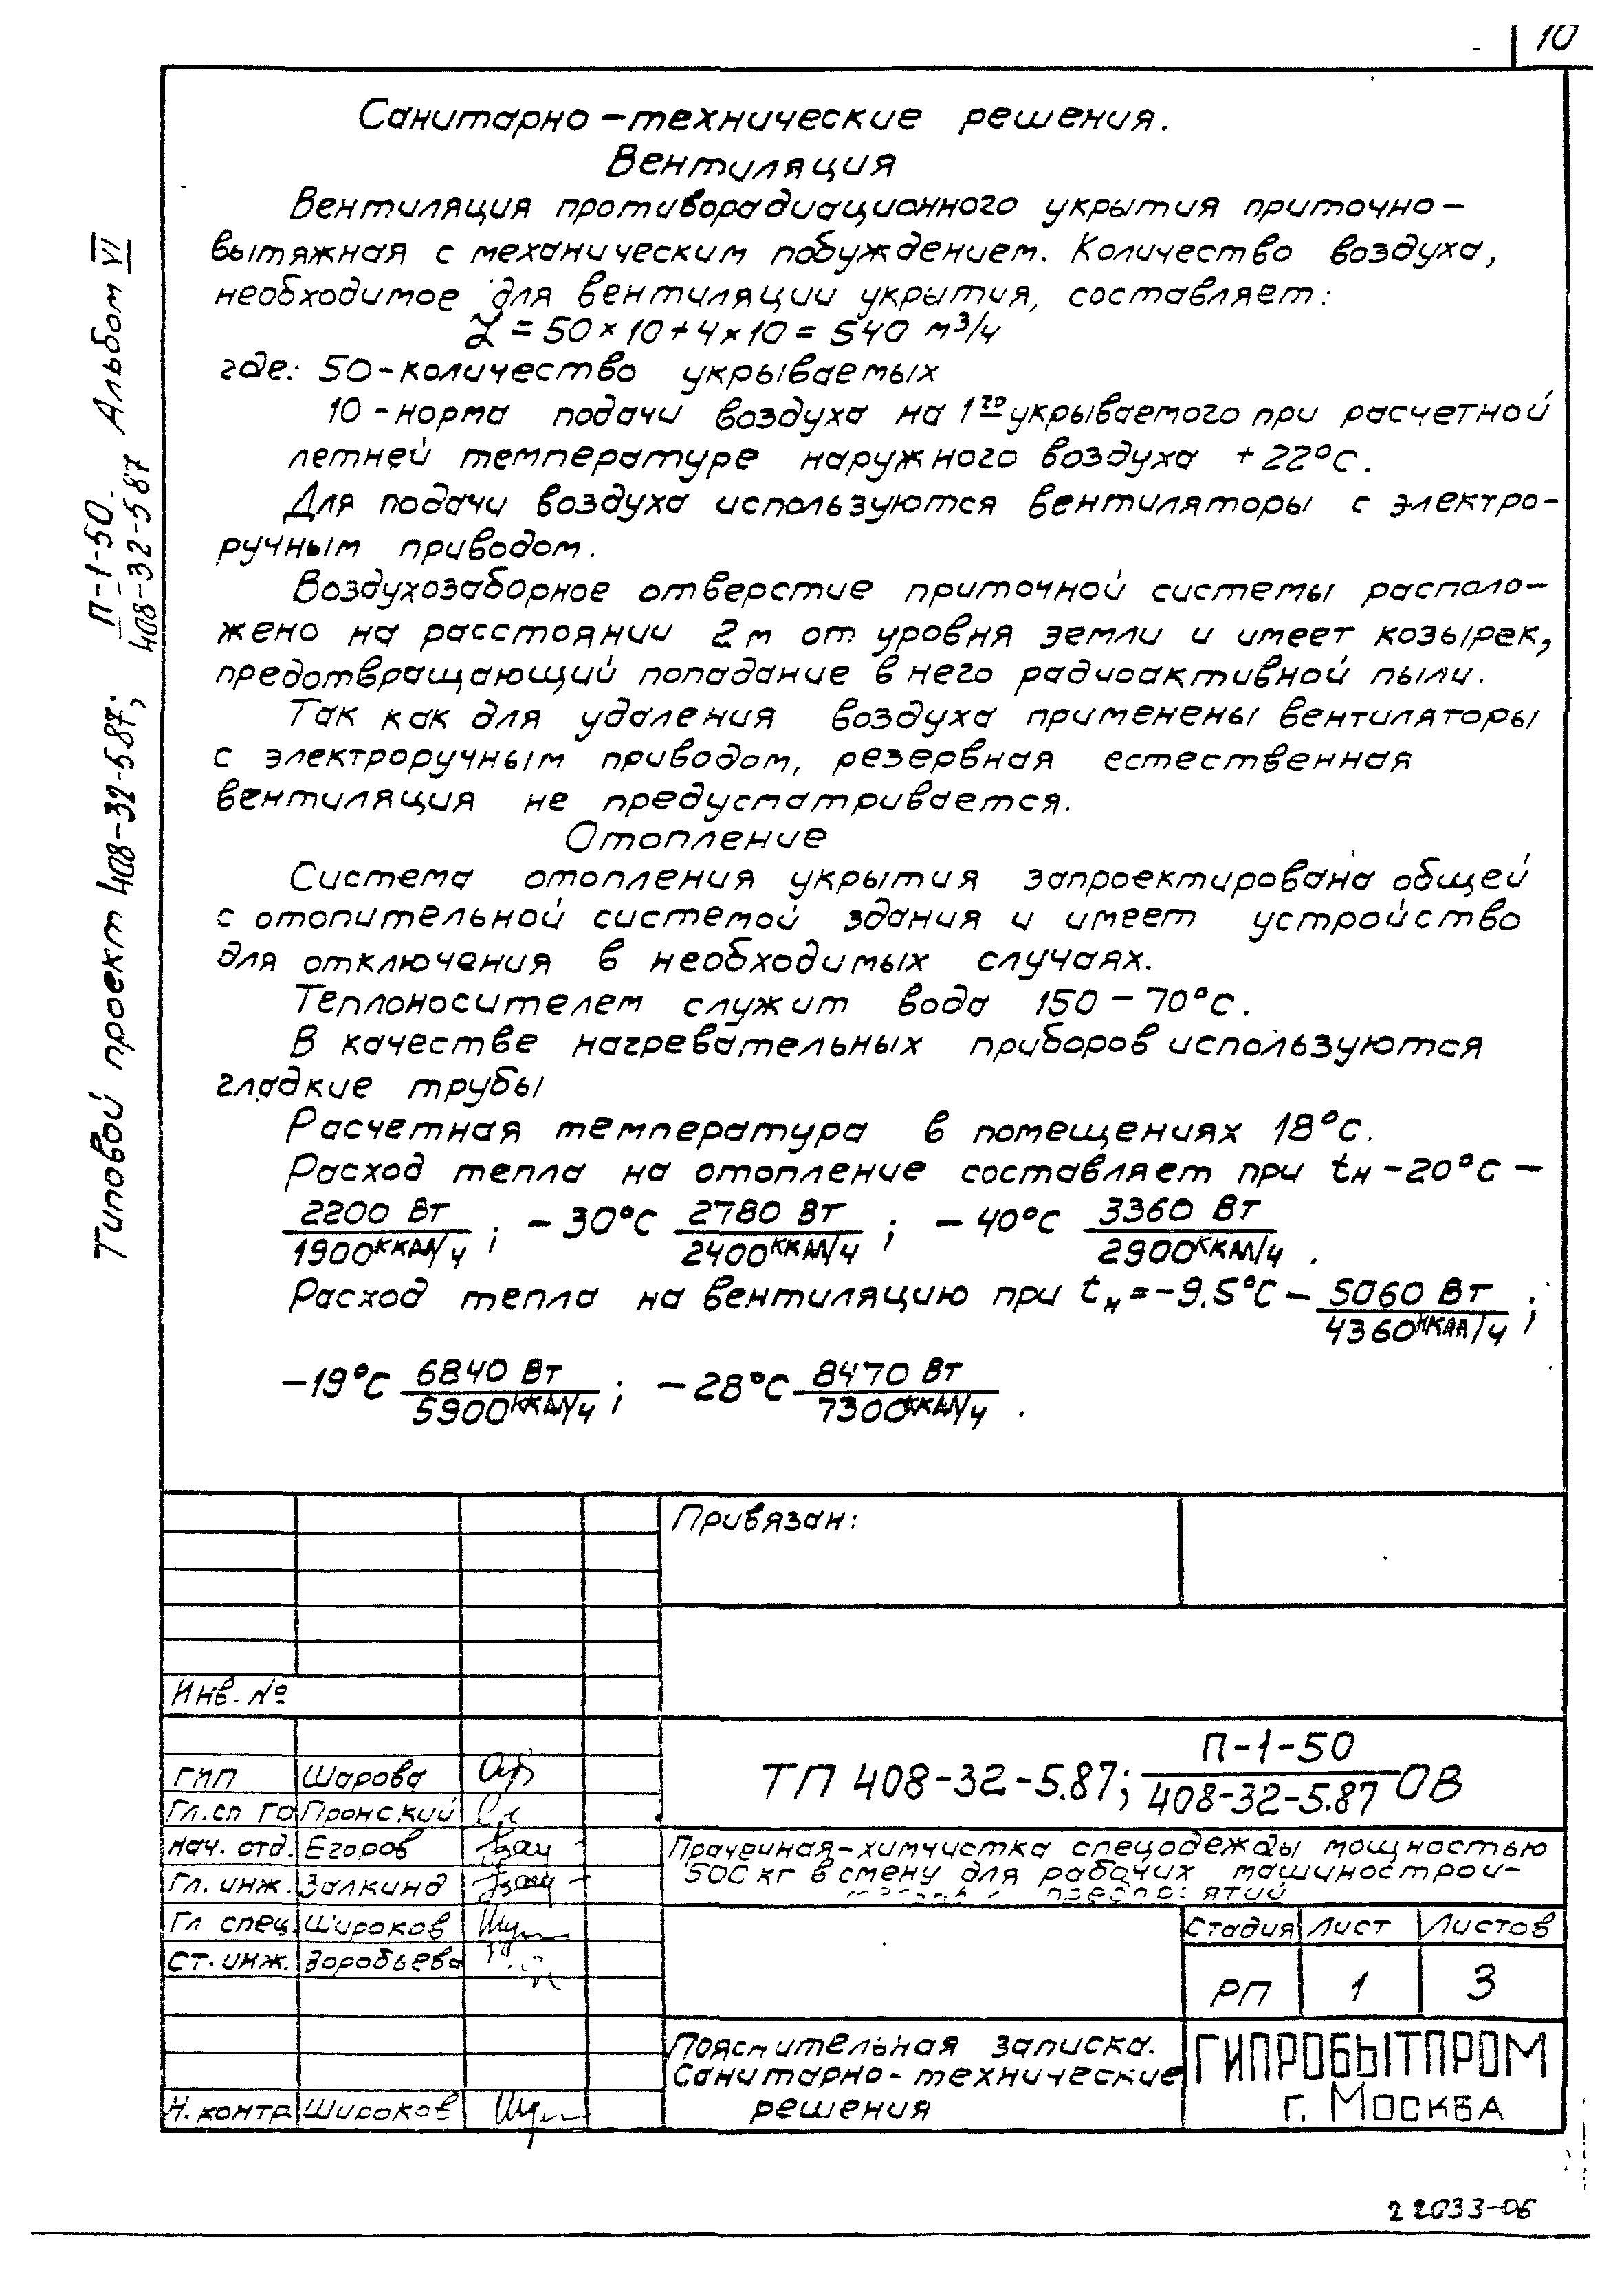 10
Санитарно-технические решения.
Вентиляция
Вентиляция противорадиационного укрытия приточно-
вытяжная с механическим побуждением. Количество воздуха,
необходимое для вентиляции укрытия, составляет:
L = 50 × 10 + 4 × 10 = 540 м³/ч
где: 50-количество укрываемых
10 - норма подачи воздуха на 1го укрываемого при расчетной
летней температуре наружного воздуха +22°С.
Для подачи воздуха используются вентиляторы с электро-
ручным приводом.
Воздухозаборное отверстие приточной системы располо-
жено на расстоянии 2м от уровня земли и имеет козырек,
предотвращающий попадание в него радиоактивной пыли.
Так как для удаления воздуха применены вентиляторы
с электроручным приводом, резервная естественная
вентиляция не предусматривается.
Отопление
Система отопления укрытия запроектирована общей
с отопительной системой здания и имеет устройство
для отключения в необходимых случаях.
Теплоносителем служит вода 150 - 70°С.
В качестве нагревательных приборов используются
гладкие трубы
Расчетная температура в помещениях 18°С.
Расход тепла на отопление составляет при tн -20°С -
2200 Вт/1900 ккал/ч; -30°С 2780 Вт/2400 ккал/ч; -40°С 3360 Вт/2900 ккал/ч.
Расход тепла на вентиляцию при tн = -9.5°С - 5060 Вт/4360 ккал/ч;
-19°С 6840 Вт/5900 ккал/ч; -28°С 8470 Вт/7300 ккал/ч.
Типовой проект 408-32-5.87; П-1-50/408-32-5.87 Альбом VI
Привязан:
Инв. №
ГИП Шарова
Гл.сп ГО Пронский
Нач. отд. Егоров
Гл. инж. Залкинд
Гл спец. Широков
Ст. инж. Воробьева
Н. контр Широков
ТП 408-32-5.87; П-1-50/408-32-5.87 ОВ
Прачечная-химчистка спецодежды мощностью
500 кг в смену для рабочих машинострои-
предприятий
Стадия Лист Листов
РП 1 3
Пояснительная записка.
Санитарно-технические
решения
ГИПРОБЫТПРОМ
г. Москва
22033-06